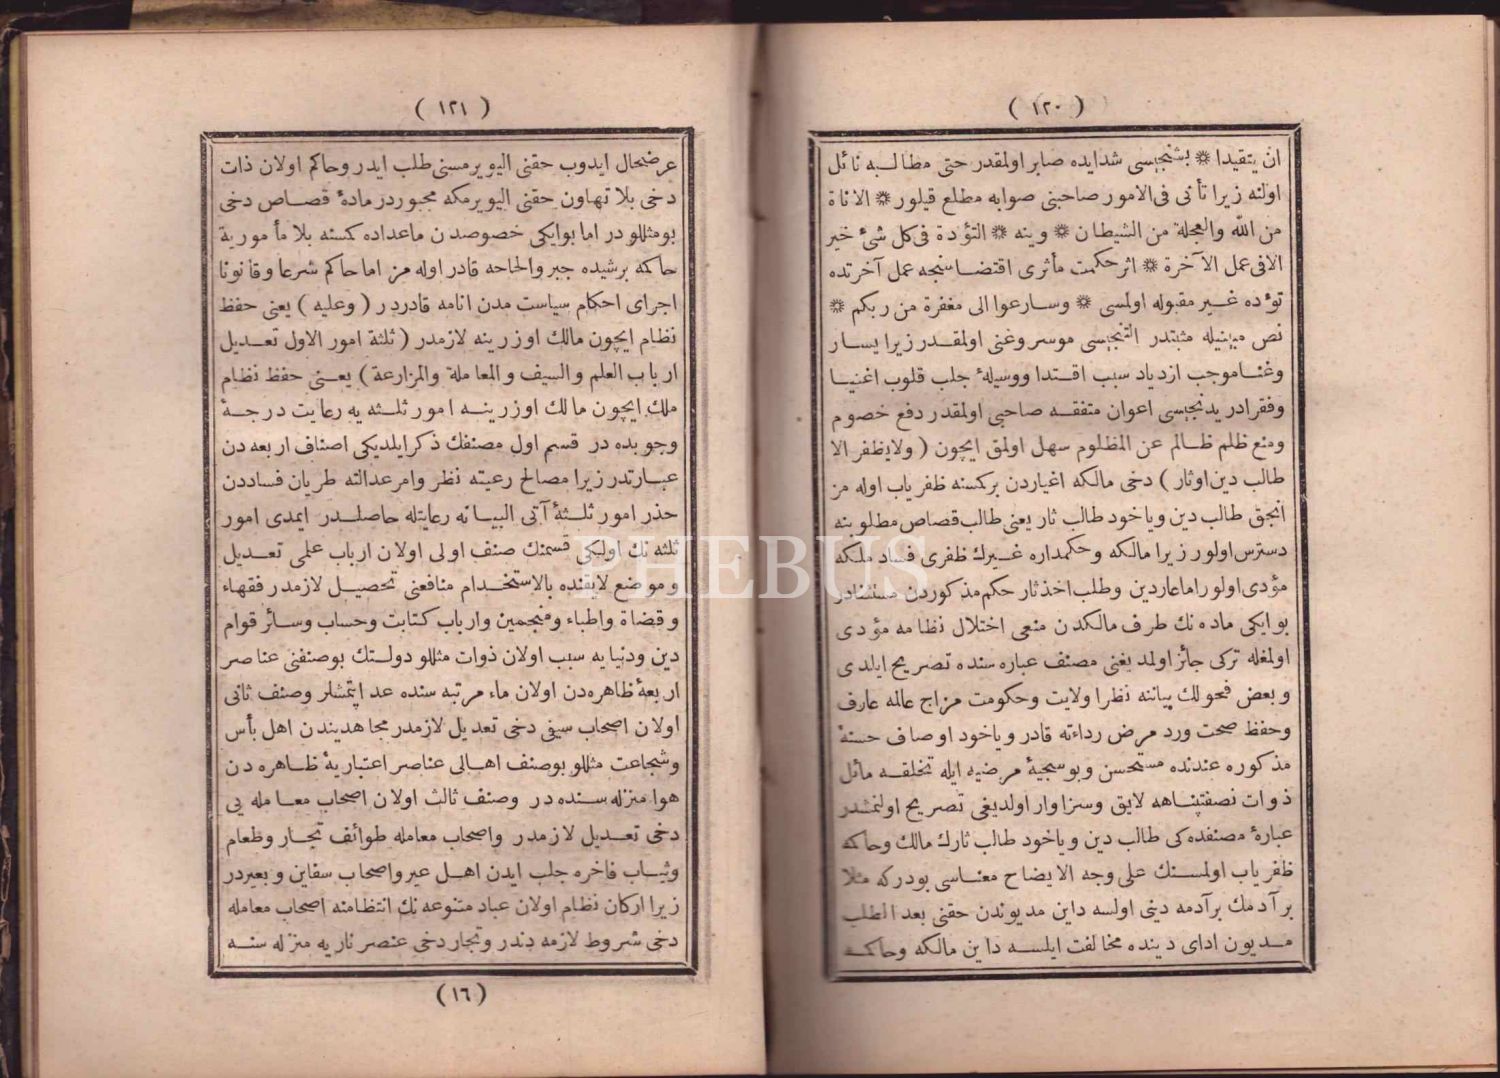 ( ١٢٠ )
ان يتقيدا ❊ بشنجيسى شدايده صابر اولمقدر حتى مطالبه نائل
اولنه زيرا تأنى فى الامور صاحبنى صوابه مطلع قيلور ❊ الاناة
من الله والعجلة من الشيطان ❊ وينه ❊ التؤدة فى كل شئ خير
الا فى عمل الآخرة ❊ اثر حكمت مأثرى اقتضاسنجه عمل آخرتده
تؤده غير مقبوله اولمسى ❊ وسارعوا الى مغفرة من ربكم ❊
نص مبينيله مثبتدر التنجيسى موسر وغنى اولمقدر زيرا يسار
وغنا موجب ازدياد سبب اقتدا ووسيلهٔ جلب قلوب اغنيا
وفقرادر يدنجيسى اعوان متفقه صاحبى اولمقدر دفع خصوم
ومنع ظلم ظالم عن المظلوم سهل اولمق ايچون ( ولا يظفر الا
طالب دين او ثار ) دخى مالكه اغياردن بركسنه ظفرياب اوله مز
انجق طالب دين وياخود طالب ثار يعنى طالب قصاص مطلوبنه
دسترس اولور زيرا مالكه وحكمداره غيرك ظفرى فساد ملكه
مؤدى اولور اما عاردين وطلب اخذ ثار حكم مذكوردن مستثنادر
بو ايكى ماده نك طرف مالكدن منعى اختلال نظامه مؤدى
اولمغله تركى جائز اولمديغنى مصنف عباره سنده تصريح ايلدى
وبعض فحولك بياننه نظرا ولايت وحكومت مزاج عالمه عارف
وحفظ صحت ورد مرض ردائته قادر وياخود اوصاف حسنهٔ
مذكوره عندنده مستحسن وبو سجيهٔ مرضيه ايله تخلقه مائل
ذوات نصفتپناهه لايق وسزاوار اولديغى تصريح اولنمشدر
عبارهٔ مصنفده كى طالب دين وياخود طالب ثارك مالك وحاكمه
ظفرياب اولمسنك على وجه الايضاح معناسى بودركه مثلا
بر آدمك بر آدمه دينى اولسه داين مديوندن حقنى بعد الطلب
مديون اداى دينده مخالفت ايلسه داين مالكه وحاكمه
( ١٢١ )
عرضحال ايدوب حقنى اليويرمسنى طلب ايدر وحاكم اولان ذات
دخى بلا تهاون حقنى اليويرمكه مجبوردر مادهٔ قصاص دخى
بومثللودر اما بو ايكى خصوصدن ماعداده كسنه بلا مأمورية
حاكمه برشيده جبر والحاحه قادر اوله مز اما حاكم شرعا وقانونا
اجراى احكام سياست مدن انامه قادردر ( وعليه ) يعنى حفظ
نظام ايچون مالك اوزرينه لازمدر ( ثلثة امور الاول تعديل
ارباب العلم والسيف والمعاملة والمزارعة ) يعنى حفظ نظام
ملك ايچون مالك اوزرينه امور ثلثه يه رعايت درجهٔ
وجوبده در قسم اول مصنفك ذكر ايلديكى اصناف اربعه دن
عبارتدر زيرا مصالح رعيته نظر وامر عدالته طريان فساددن
حذر امور ثلثهٔ آتى البيانه رعايتله حاصلدر ايمدى امور
ثلثه نك اولكى قسمنك صنف اولى اولان ارباب علمى تعديل
ومواضع لايقنده بالاستخدام منافعنى تحصيل لازمدر فقهاء
وقضاة واطباء ومنجمين وارباب كتابت وحساب وسائر قوام
دين ودنيايه سبب اولان ذوات مثللو دولتك بوصنفنى عناصر
اربعهٔ ظاهره دن اولان ماء مرتبه سنده عد ايتمشلر وصنف ثانى
اولان اصحاب سيفى دخى تعديل لازمدر مجاهديندن اهل بأس
وشجاعت مثللو بوصنف اهالى عناصر اعتباريهٔ ظاهره دن
هوا منزله سنده در وصنف ثالث اولان اصحاب معامله يى
دخى تعديل لازمدر واصحاب معامله طوائف تجار وطعام
وثياب فاخره جلب ايدن اهل عير واصحاب سفاين وبعيردر
زيرا اركان نظام اولان عباد متنوعه نك انتظامنه اصحاب معامله
دخى شروط لازمه دندر وتجار دخى عنصر ناريه منزله سنه
( ١٦ )
PHEBUS